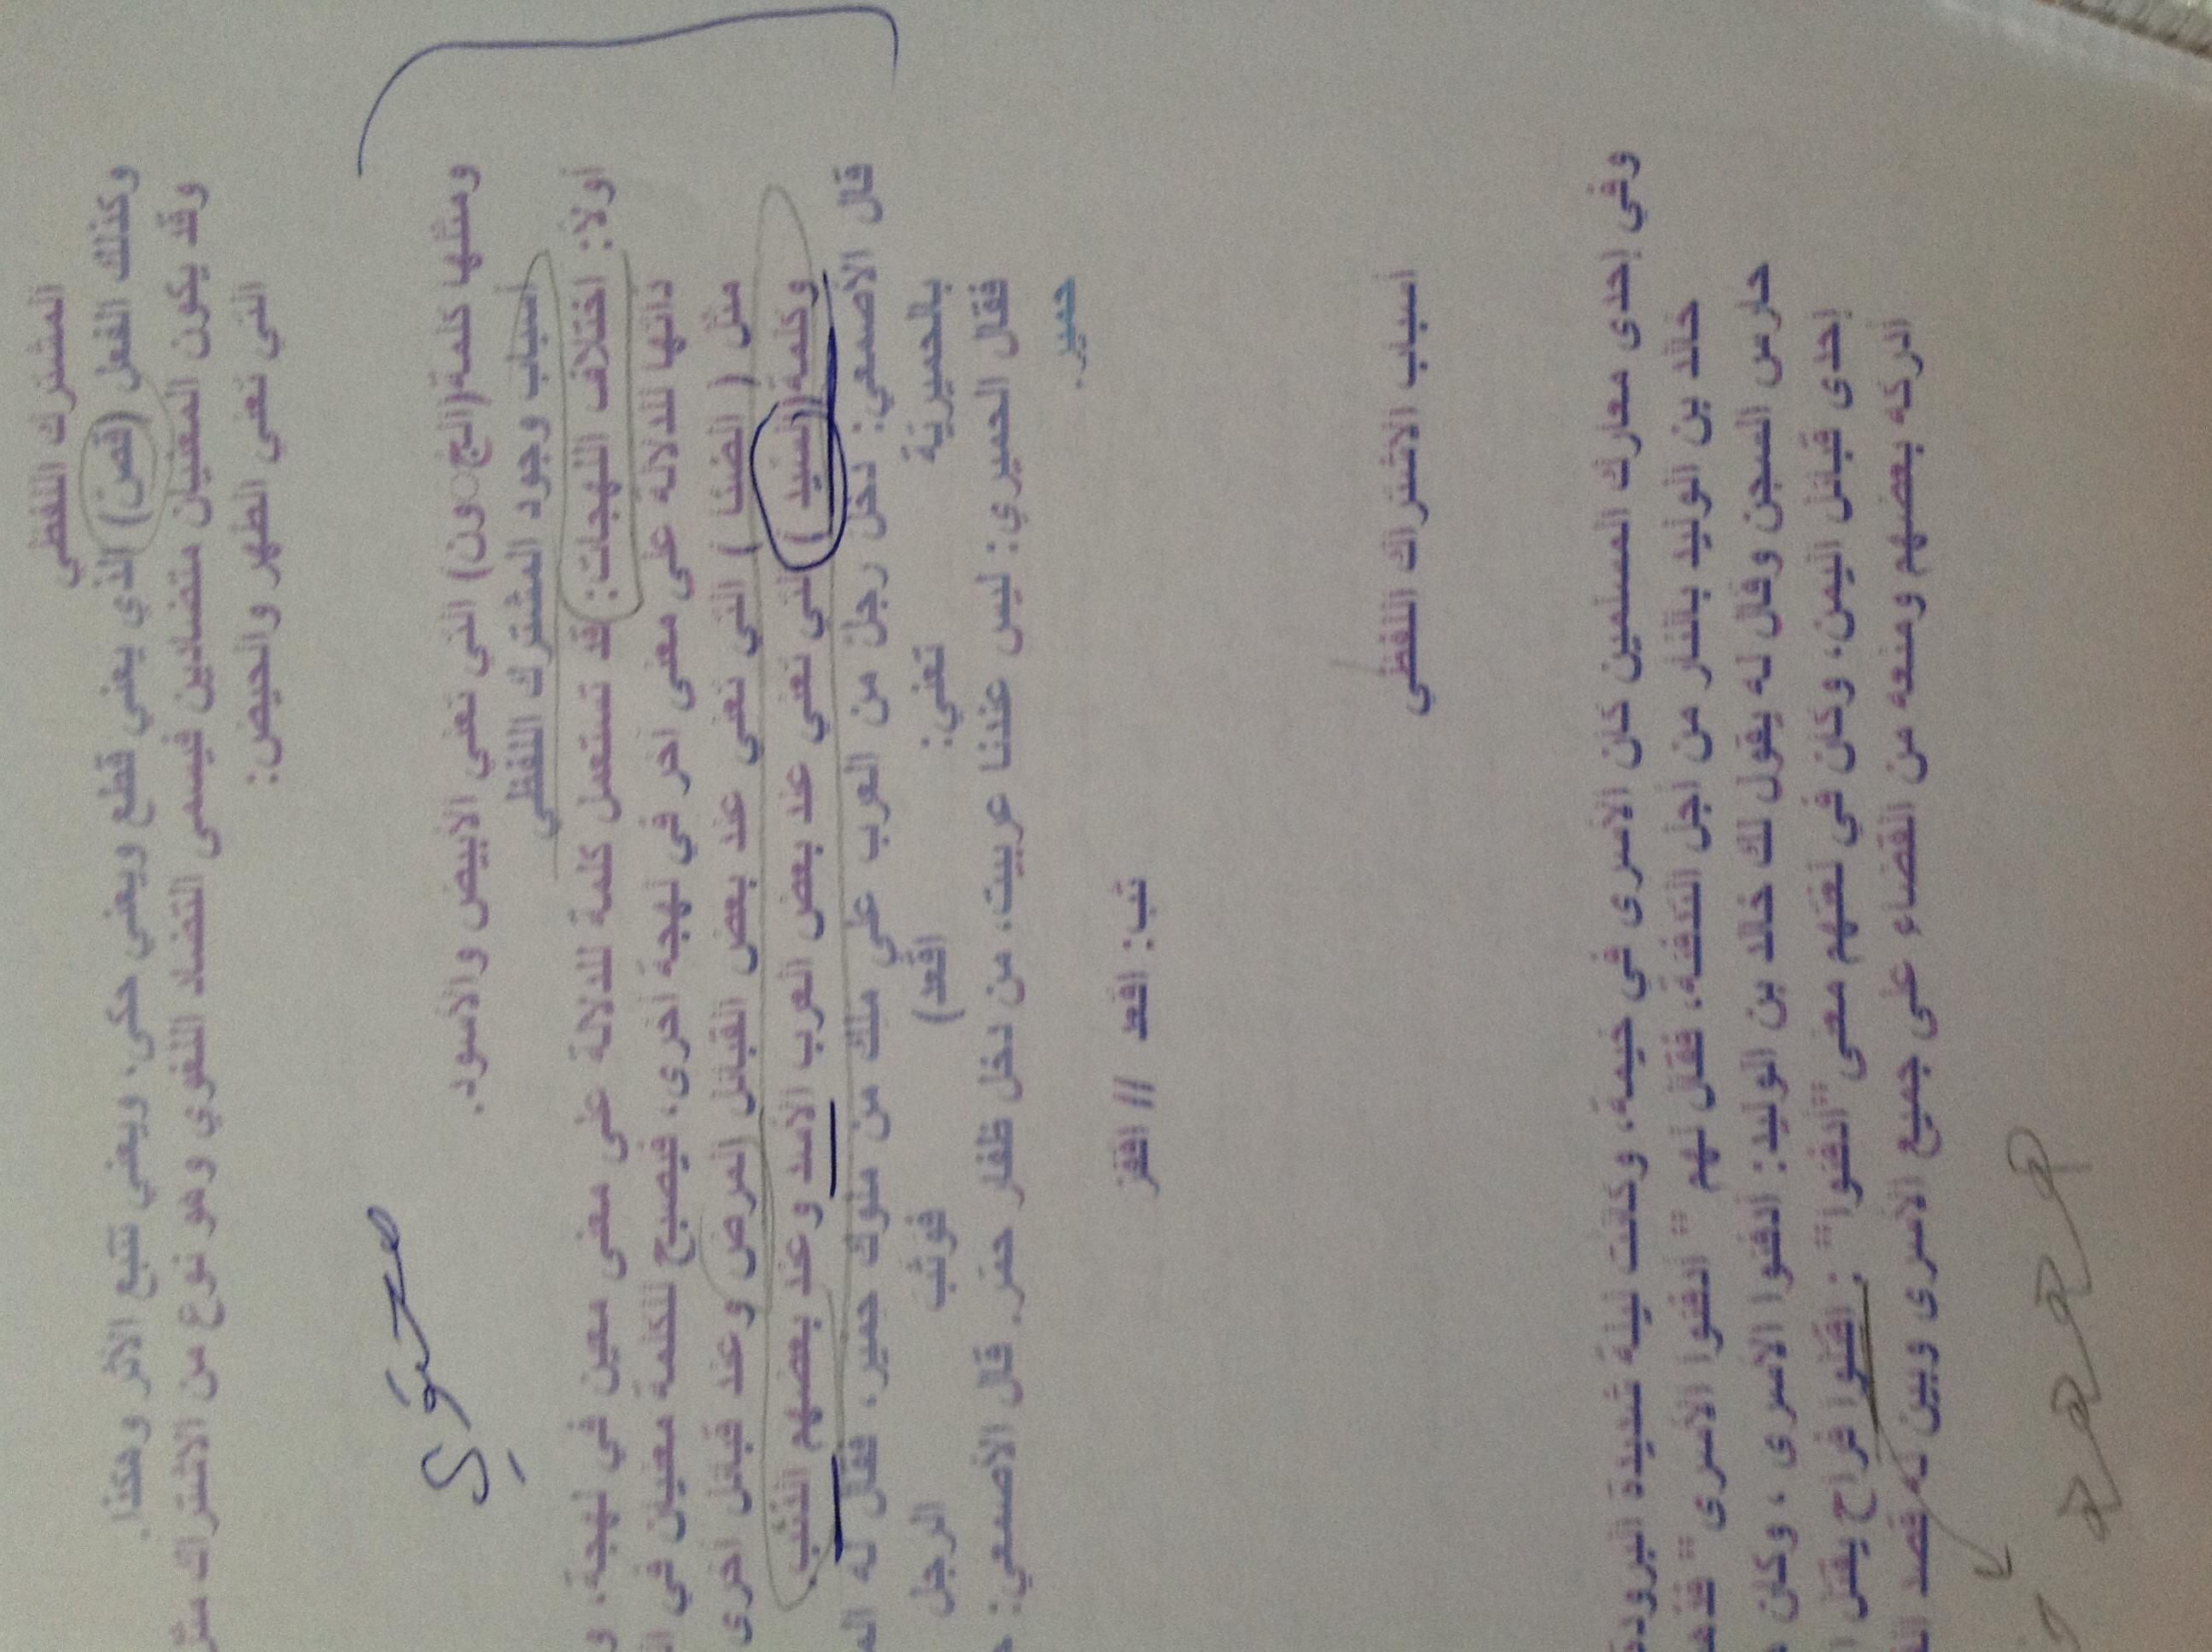 المشترك اللفظي
وكذلك الفعل (قص) الذي يعني قطع ويعني حكى، ويعني تتبع الأثر وهكذا.
وقد يكون المعنيان متضادين فيسمى التضاد اللغوي وهو نوع من الاشتراك مثل
التي تعني الطهر والحيض:
ومثلها كلمة(الجون) التي تعني الأبيض والأسود.
أسباب وجود المشترك اللفظي
أولا: اختلاف اللهجات: قد تستعمل كلمة للدلالة على معنى معين في لهجة، و
ذاتها للدلالة على معنى آخر في لهجة أخرى، فيصبح للكلمة معنيان في
مثل ( الضنا ) التي تعني عند بعض القبائل المرض وعند قبائل أخرى
وكلمة(السّيد ) التي تعني عند بعض العرب الأسد وعند بعضهم الذئب
قال الأصمعي: دخل رجل من العرب على ملك من ملوك حمير، فقال له
بالحميرية تعني: اقعد) فوثب الرجل
فقال الحميري: ليس عندنا عربيت، من دخل ظفار حمّر. قال الأصمعي:
حمير.
ثب: اقعد // اقفز
أسباب الاشتراك اللفظي
وفي إحدى معارك المسلمين كان الأسرى في خيمة، وكانت ليلة شديدة البرودة
خالد بن الوليد بالنار من أجل التدفئة، فقال لهم " ادفئوا الأسرى"
حارس السجن وقال له يقول لك خالد بن الوليد: ادفئوا الأسرى ، وكان
إحدى قبائل اليمن، وكان في لغتهم معنى "ادفئوا" : اقتلوا فراح يقتل
أدركه بعضهم ومنعه من القضاء على جميع الأسرى وبين له قصد